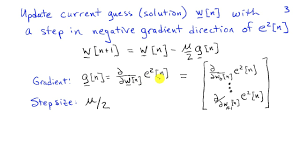 Update current guess (solution) w[n] with 3
a step in negative gradient direction of e²[n]
w[n+1] = w[n] - μ/2 g[n]
Gradient: g[n] = ∂/∂w[n] e²[n] = [∂/∂w₀[n] e²[n] ⋮ ∂/∂w [n] e²[n]]
Step size: μ/2